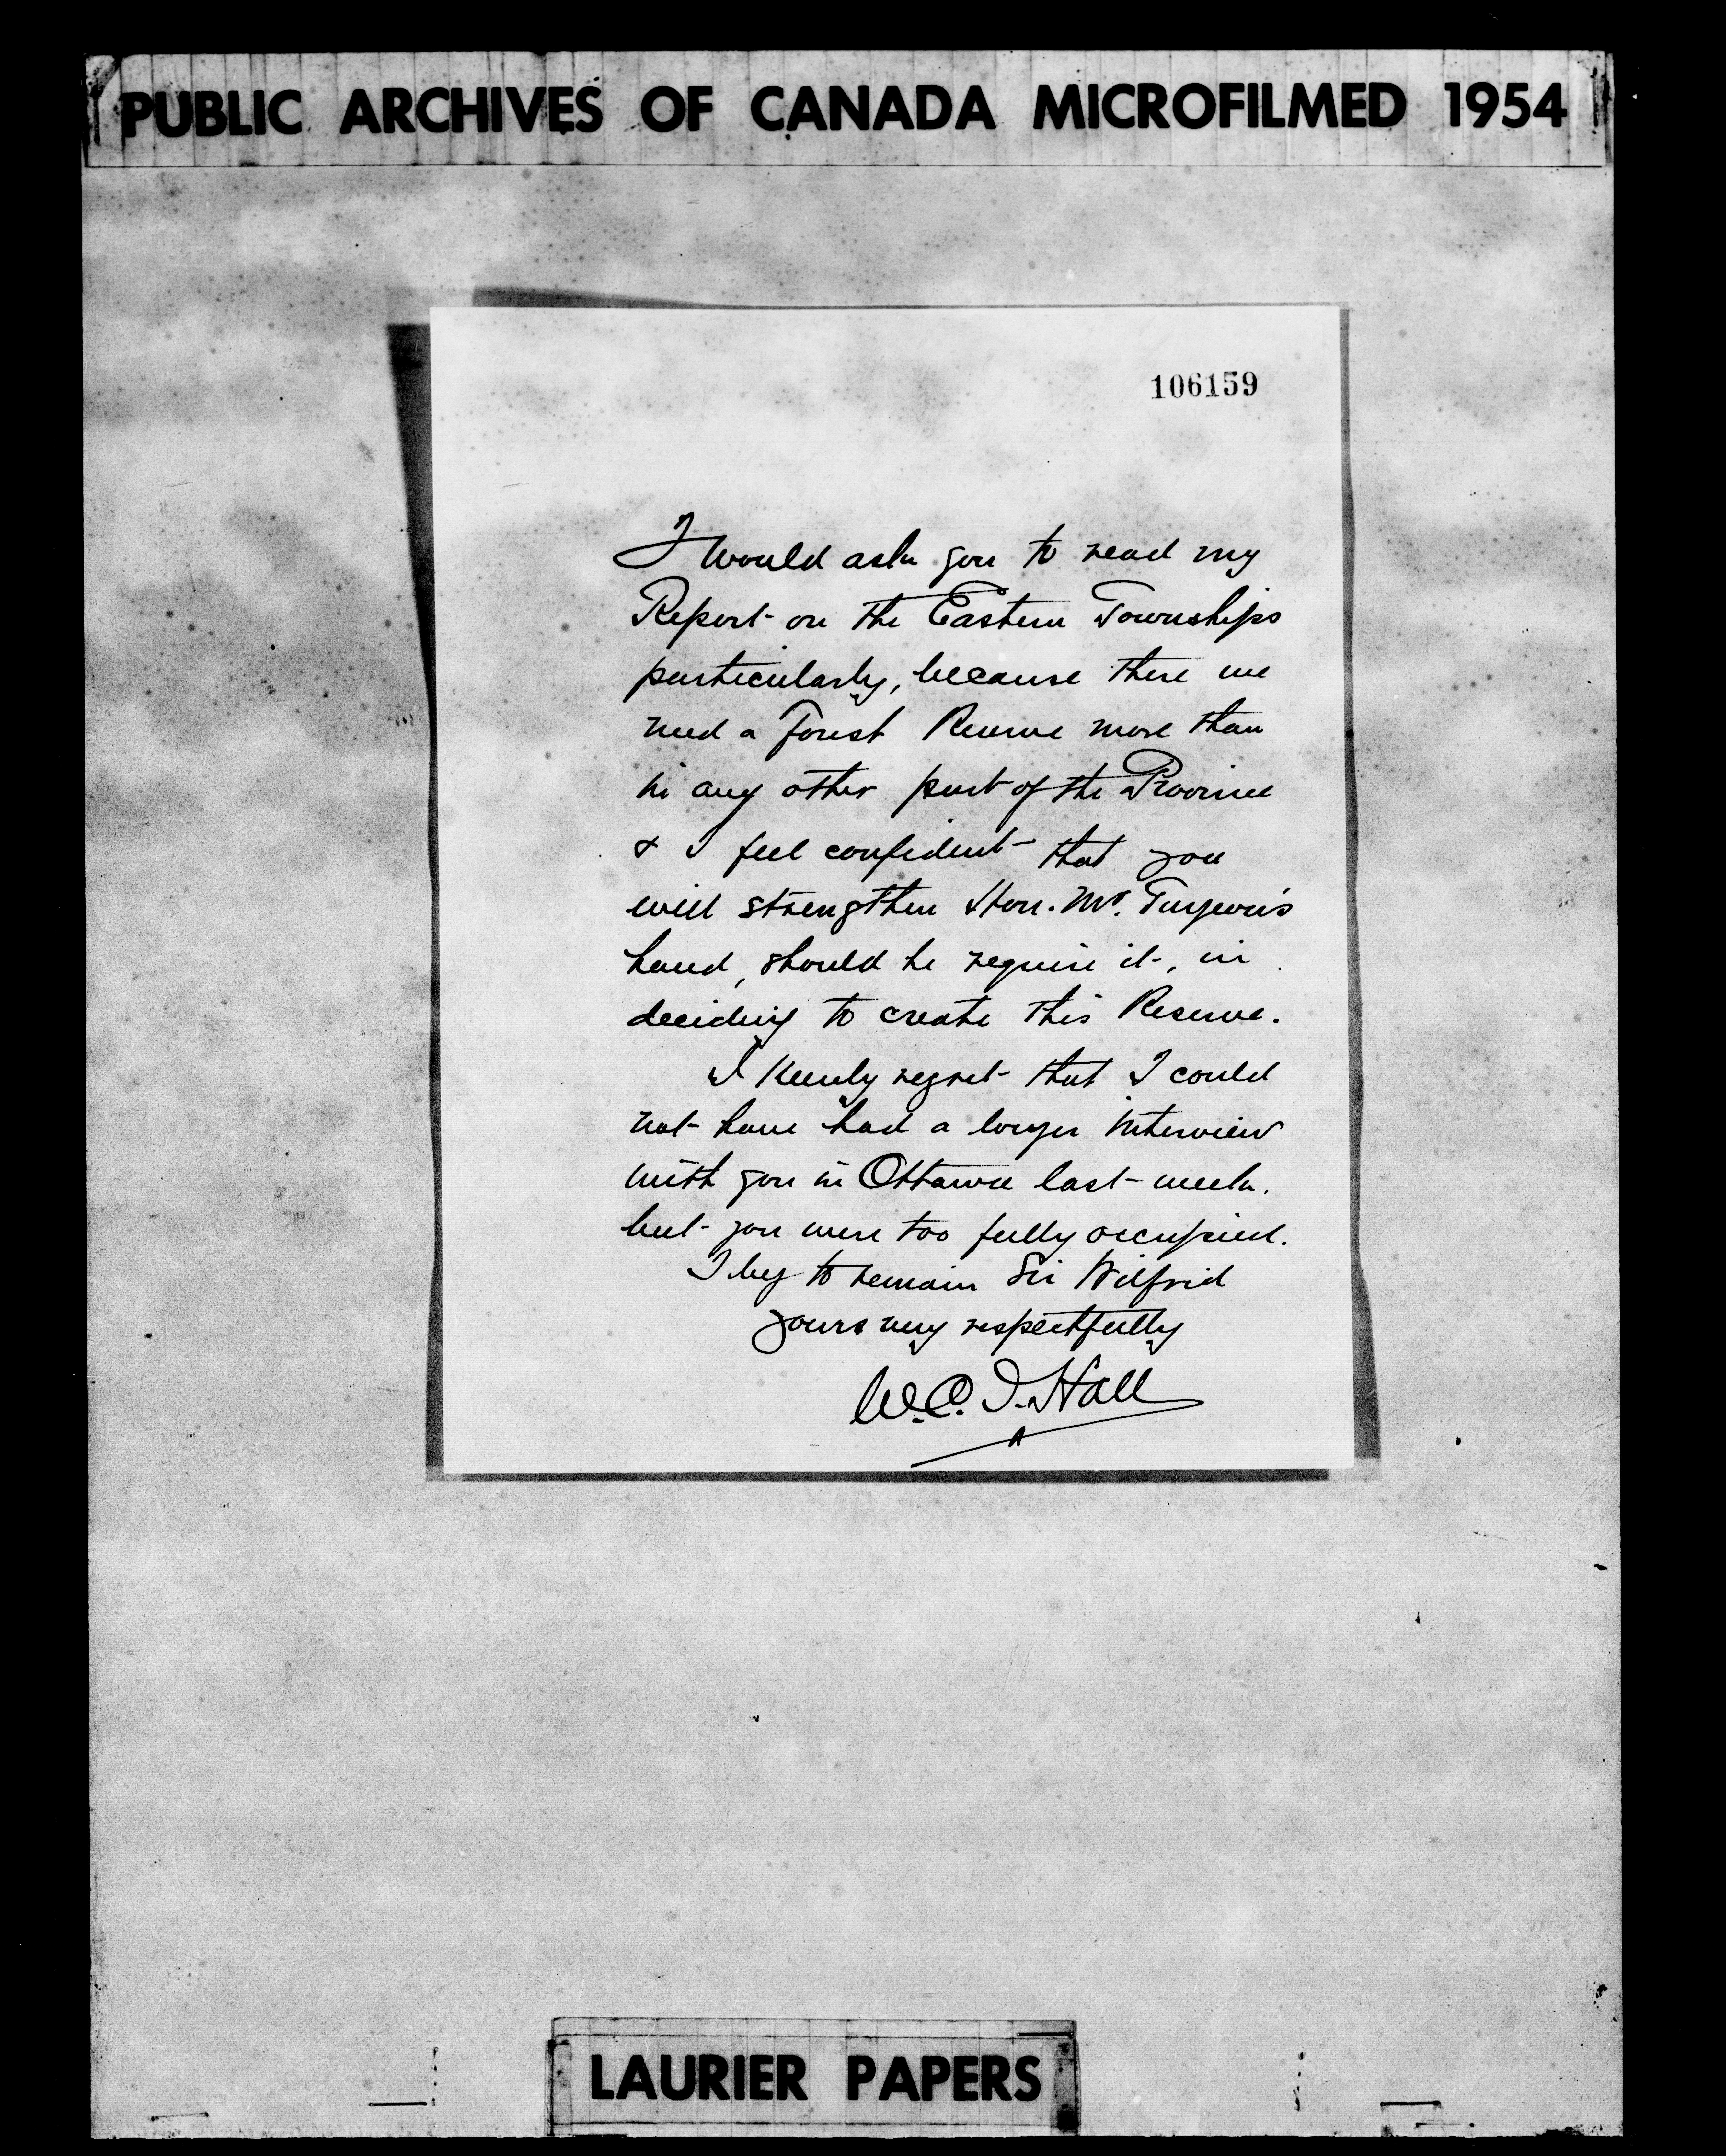 PUBLIC ARCHIVES OF CANADA MICROFILMED 1954
106159
I would ask you to read my
Report on the Eastern Townships
particularly, because there we
need a Forest Reserve more than
in any other part of the Province
& I feel confident that you
will strengthen Hon. Mr. Turgeon's
hand, should he require it, in
deciding to create this Reserve.
I keenly regret that I could
not have had a longer interview
with you in Ottawa last week,
but you were too fully occupied.
I beg to remain Sir Wilfrid
yours very respectfully
W.C.J. Hall
LAURIER PAPERS